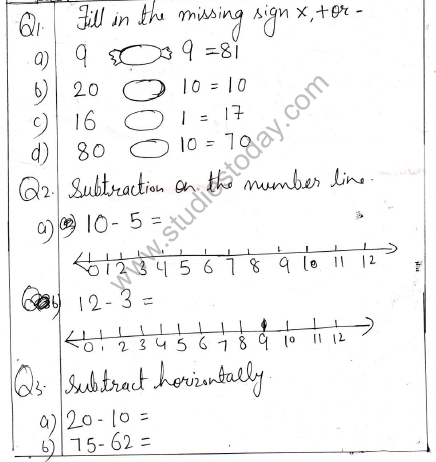 Q1. Fill in the missing sign x, + or -
a) 9 9 = 81
b) 20 10 = 10
c) 16 1 = 17
d) 80 10 = 70
Q2. Subtraction on the number line.
a) 10 - 5 =
0 1 2 3 4 5 6 7 8 9 10 11 12
b) 12 - 3 =
0 1 2 3 4 5 6 7 8 9 10 11 12
Q3. Subtract horizontally.
a) 20 - 10 =
b) 75 - 62 =
www.studiestoday.com